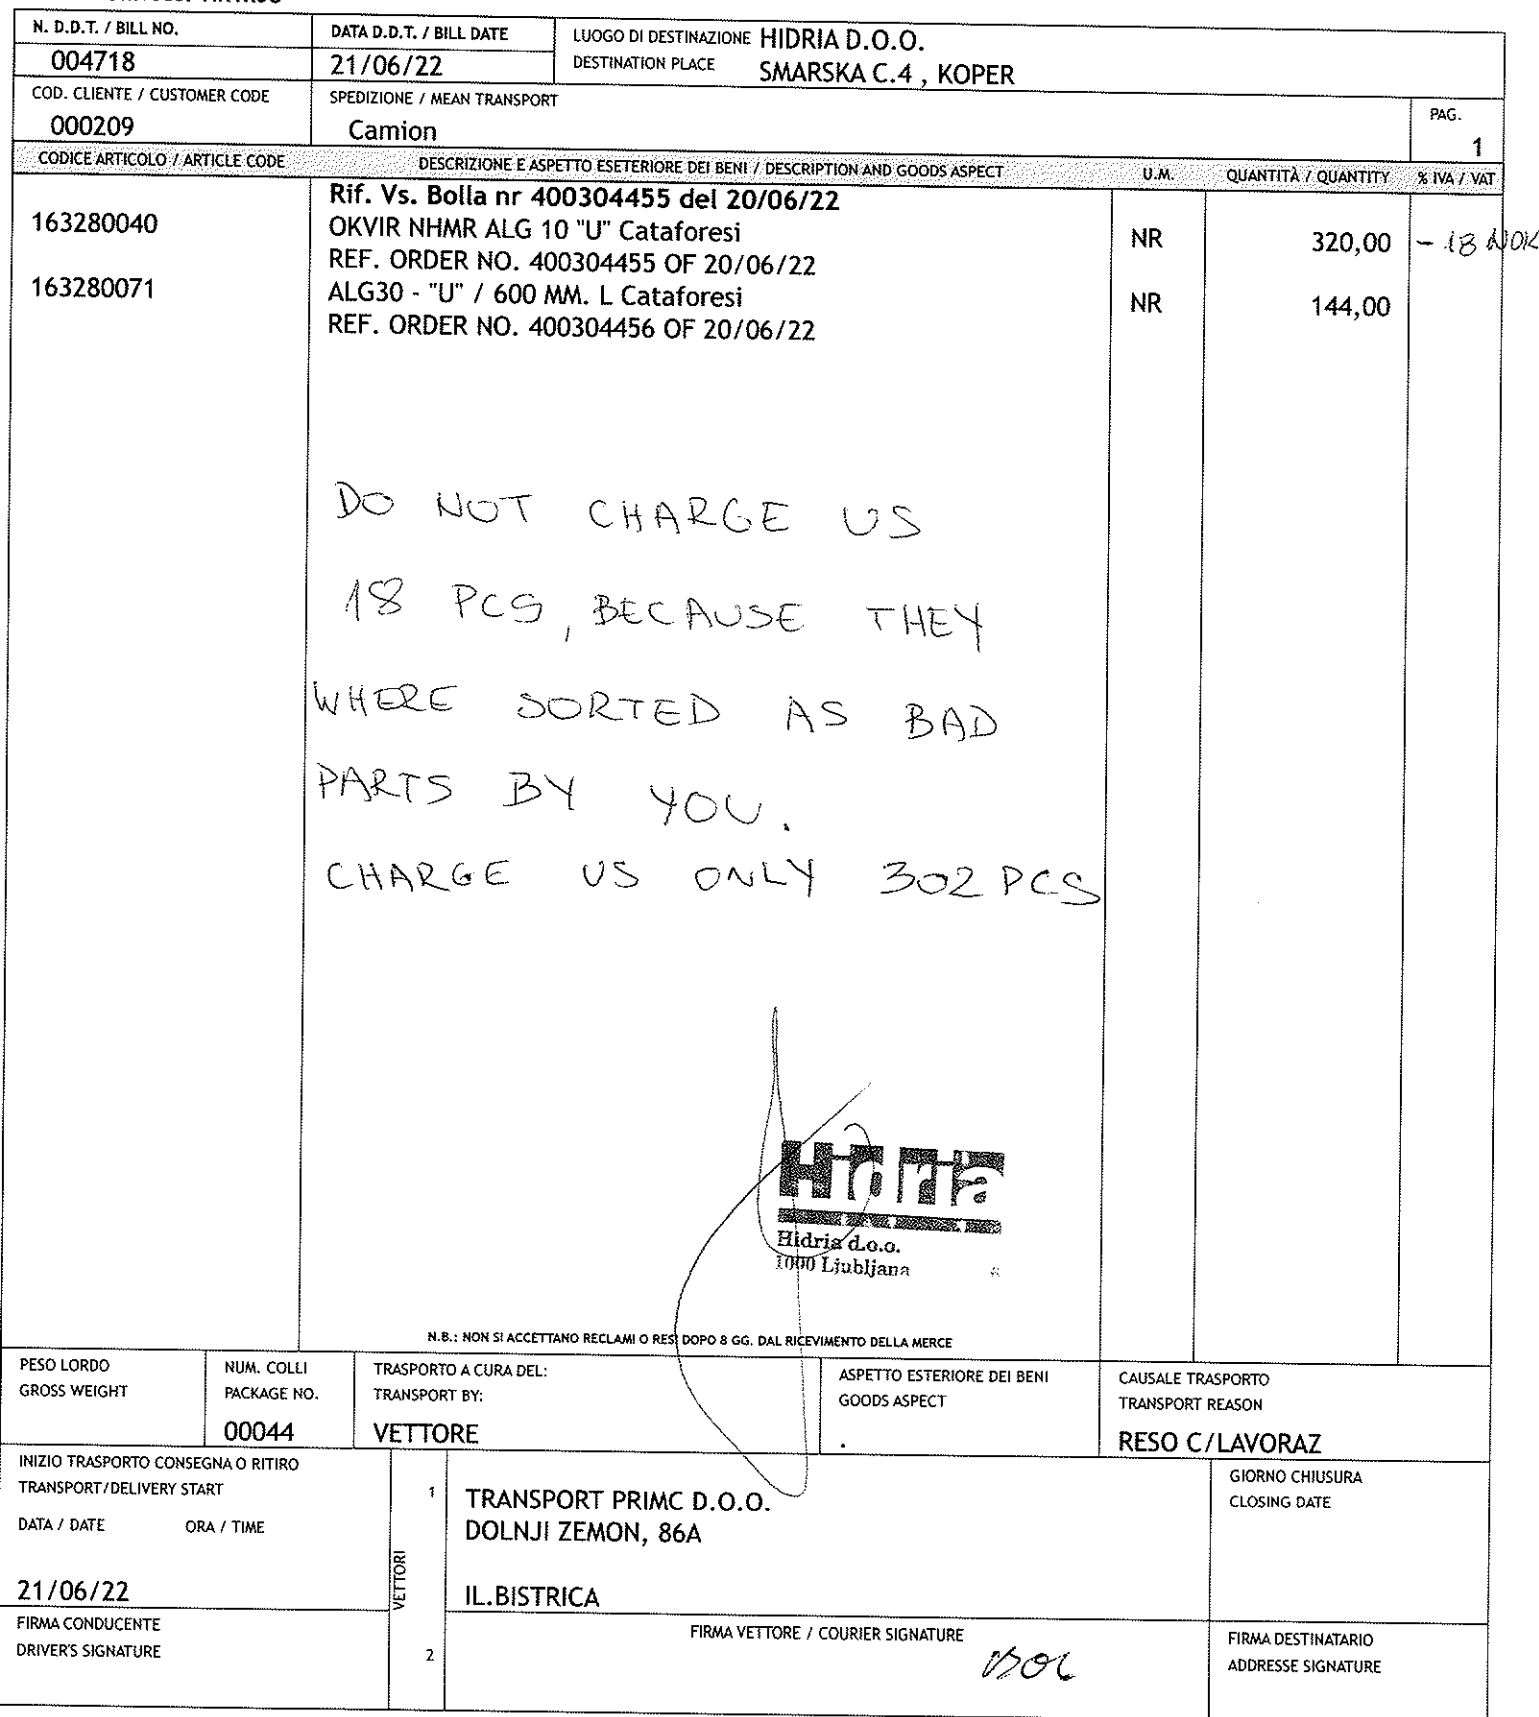 N. D.D.T. / BILL NO.
004718
DATA D.D.T. / BILL DATE
21/06/22
LUOGO DI DESTINAZIONE HIDRIA D.O.O.
DESTINATION PLACE SMARSKA C.4 , KOPER
COD. CLIENTE / CUSTOMER CODE
000209
SPEDIZIONE / MEAN TRANSPORT
Camion
PAG.
1
CODICE ARTICOLO / ARTICLE CODE DESCRIZIONE E ASPETTO ESETERIORE DEI BENI / DESCRIPTION AND GOODS ASPECT U.M. QUANTITÀ / QUANTITY % IVA / VAT
Rif. Vs. Bolla nr 400304455 del 20/06/22
163280040 OKVIR NHMR ALG 10 "U" Cataforesi NR 320,00 - 18 NOK
REF. ORDER NO. 400304455 OF 20/06/22
163280071 ALG30 - "U" / 600 MM. L Cataforesi NR 144,00
REF. ORDER NO. 400304456 OF 20/06/22
DO NOT CHARGE US
18 PCS, BECAUSE THEY
WHERE SORTED AS BAD
PARTS BY YOU.
CHARGE US ONLY 302 PCS
Hidria
Hidria d.o.o.
1000 Ljubljana
N.B.: NON SI ACCETTANO RECLAMI O RESI DOPO 8 GG. DAL RICEVIMENTO DELLA MERCE
PESO LORDO
GROSS WEIGHT
NUM. COLLI
PACKAGE NO.
00044
TRASPORTO A CURA DEL:
TRANSPORT BY:
VETTORE
ASPETTO ESTERIORE DEI BENI
GOODS ASPECT
.
CAUSALE TRASPORTO
TRANSPORT REASON
RESO C/LAVORAZ
INIZIO TRASPORTO CONSEGNA O RITIRO
TRANSPORT/DELIVERY START
DATA / DATE ORA / TIME
21/06/22
VETTORI
1
TRANSPORT PRIMC D.O.O.
DOLNJI ZEMON, 86A
IL.BISTRICA
GIORNO CHIUSURA
CLOSING DATE
FIRMA CONDUCENTE
DRIVER'S SIGNATURE
2
FIRMA VETTORE / COURIER SIGNATURE
FIRMA DESTINATARIO
ADDRESSE SIGNATURE